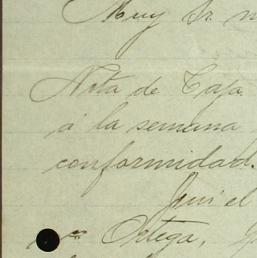 Muy Sr. m
Nota de Caja
á la semana
conformidad.
el
Ortega,